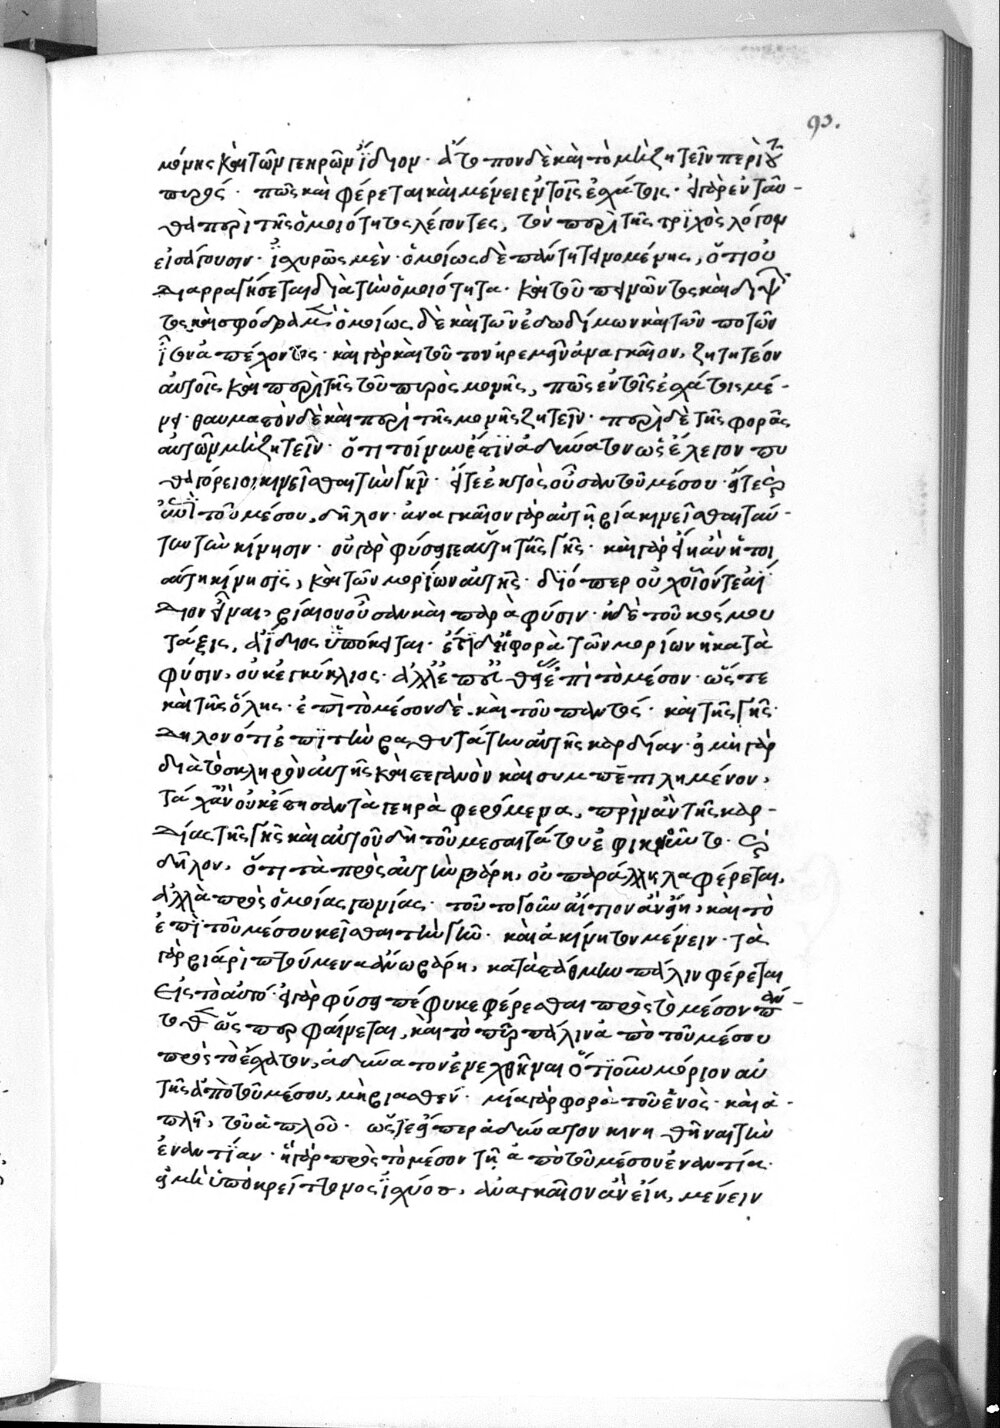 93.
μόνης καὶ τῶν γεηρῶν ἴδιον · ἄτοπον δὲ καὶ τὸ μὴ ζητεῖν περὶ τοῦ
πυρός · πῶς καὶ φέρεται καὶ μένει ἐν τοῖς ἐσχάτοις · εἰ γὰρ ἐνταῦ-
θα περὶ τῆς ὁμοιότητος λέγοντες, τὸν περὶ τῆς τριχὸς λόγον
εἰσάγουσιν · ἰσχυρῶς μὲν · ὁμοίως δὲ πάντῃ τεινομένης, ὅτι οὐ
διαρραγήσεται διὰ τὴν ὁμοιότητα · καὶ τοῦ πεινῶντος καὶ διψῶν
τος καὶ σφόδρα μὲν ὁμοίως δὲ καὶ τῶν ἐδωδίμων καὶ τῶν ποτῶν
ἴσον ἀπέχοντος · καὶ γὰρ καὶ τοῦτον ἠρεμεῖν ἀναγκαῖον, ζητητέον
αὐτοῖς καὶ περὶ τῆς τοῦ πυρὸς μονῆς, πῶς ἐν τοῖς ἐσχάτοις μέ-
νει · θαυμαστὸν δὲ καὶ περὶ τῆς μονῆς ζητεῖν · περὶ δὲ τῆς φορᾶς
αὐτῶν μὴ ζητεῖν · ὅτι τοίνυν ἐστὶν ἀδύνατον ὡς ἔλεγον πυ
θαγόρειοι, κινεῖσθαι τὴν γῆν · εἴτε ἐκτὸς οὖσαν τοῦ μέσου · εἴτε
ἐπὶ τοῦ μέσου, δῆλον · ἀναγκαῖον γὰρ αὐτῇ βίᾳ κινεῖσθαι ταύ-
την τὴν κίνησιν · οὐ γὰρ φύσει γε αὕτη τῆς γῆς · καὶ γὰρ εἶχεν ἄν
αὕτη κίνησις, καὶ τῶν μορίων αὐτῆς · διόπερ οὐχ οἷόν τε ἀΐ
διον εἶναι, βίαιον οὖσαν καὶ παρὰ φύσιν · ἡ δὲ τοῦ κόσμου
τάξις, ἀΐδιος ὑπόκειται · ἔτι δὲ ἡ φορὰ τῶν μορίων ἡ κατὰ
φύσιν, οὐκ ἐγκύκλιος · ἀλλ' ἐπ' εὐθείας ἐπὶ τὸ μέσον · ὥστε
καὶ τῆς ὅλης · ἐπὶ τὸ μέσον δέ, καὶ τοῦ παντός · καὶ τῆς γῆς ·
δηλονότι ἐπὶ τὴν βαθυτάτην αὐτῆς καρδίαν · εἰ μὴ γὰρ
διὰ τὸ σκληρὸν αὐτῆς καὶ στεγανὸν καὶ συμπεπιλημένον,
τάχ' ἂν οὐκ ἔστησαν τὰ γεηρὰ φερόμενα, πρὶν ἂν τῆς καρ-
δίας τῆς γῆς καὶ αὐτοῦ δὴ τοῦ μεσαιτάτου ἐφικ
δῆλον, ὅτι τὰ πρὸς αὐτὴν βάρη, οὐ παράλληλα φέρεται,
ἀλλὰ πρὸς ὁμοίας γωνίας · τοῦτο γοῦν αἴτιον ἂν εἴη, καὶ τὸ
ἐπὶ τοῦ μέσου κεῖσθαι τὴν γῆν · καὶ ἀκίνητον μένειν · τὰ
γὰρ βίᾳ ῥιπτούμενα ἄνω βάρη, κατὰ στάθμην πάλιν φέρεται
εἰς τὸ αὐτό · εἰ γὰρ φύσει πέφυκε φέρεσθαι πρὸς τὸ μέσον παν-
τόθεν ὥσπερ φαίνεται, καὶ τὸ πῦρ πάλιν ἀπὸ τοῦ μέσου
πρὸς τὸ ἔσχατον, ἀδύνατον ἐνεχθῆναι ὁτιοῦν μόριον αὐ
τῆς ἀπὸ τοῦ μέσου, μὴ βιασθέν · μία γὰρ φορὰ τοῦ ἑνὸς · καὶ ἁ-
πλῆ, τοῦ ἁπλοῦ · ὥστε εἴπερ ἀδύνατον κινηθῆναι τὴν
ἐναντίαν · ἡ γὰρ πρὸς τὸ μέσον τῇ ἀπὸ τοῦ μέσου ἐναντία ·
εἰ μὴ ὑπὸ κρείττονος ἰσχύος, ἀναγκαῖον ἂν εἴη, μένειν